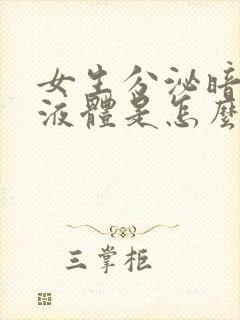 女生分泌暗
液體是怎麼
三掌柜